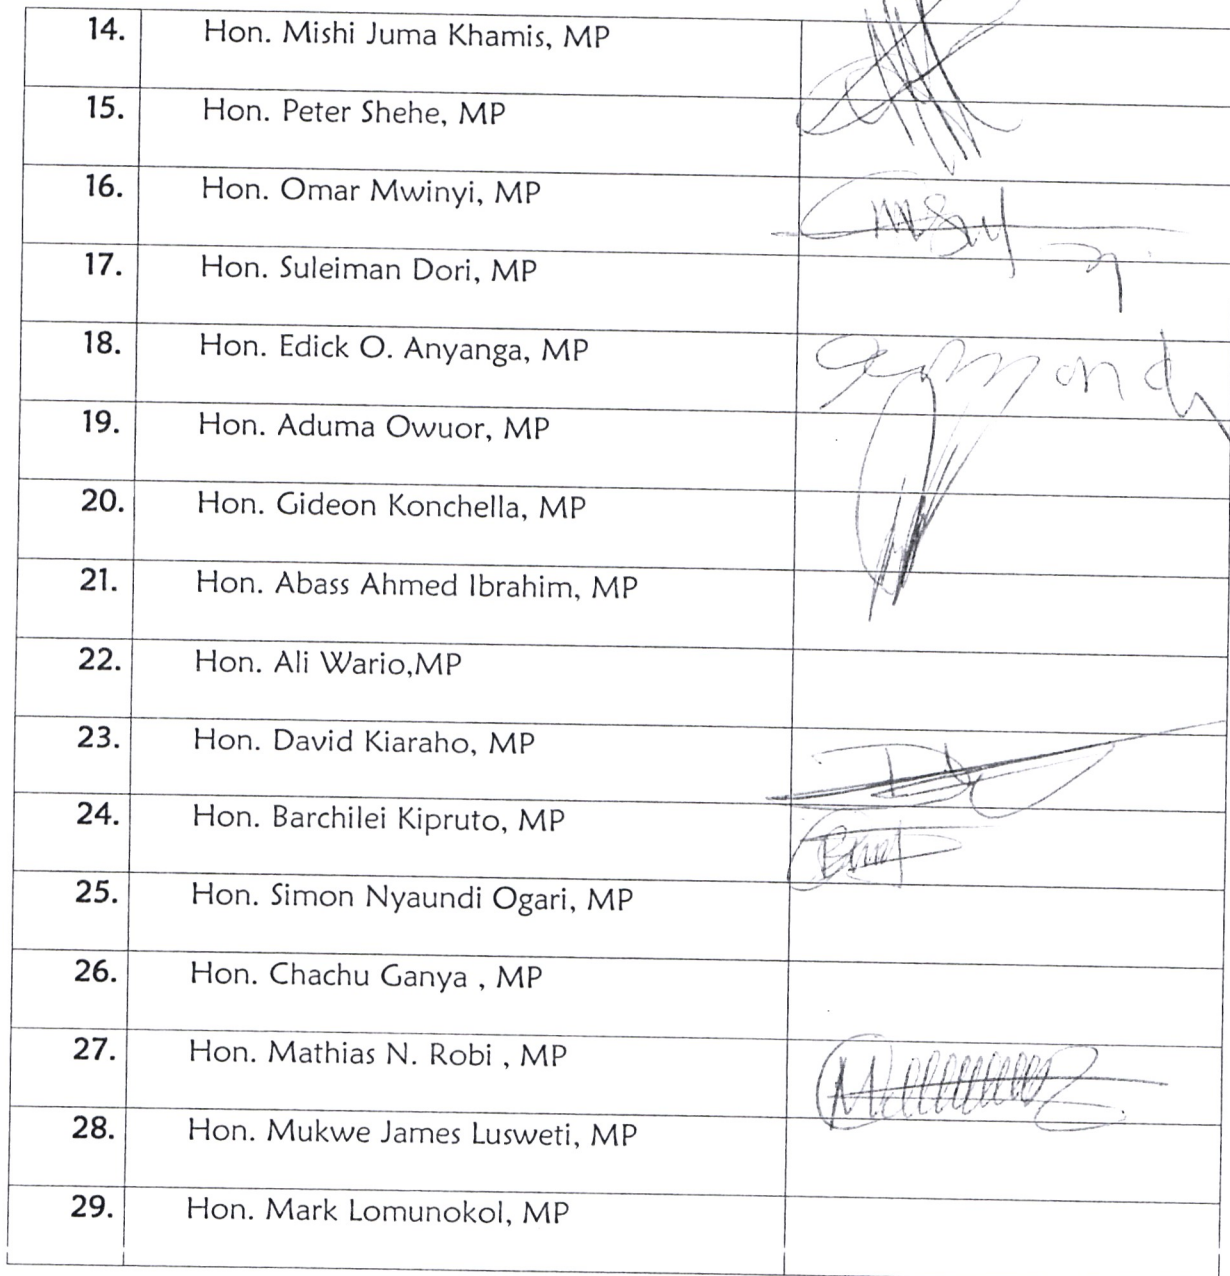 14. Hon. Mishi Juma Khamis, MP
15. Hon. Peter Shehe, MP
16. Hon. Omar Mwinyi, MP
17. Hon. Suleiman Dori, MP
18. Hon. Edick O. Anyanga, MP
19. Hon. Aduma Owuor, MP
20. Hon. Gideon Konchella, MP
21. Hon. Abass Ahmed Ibrahim, MP
22. Hon. Ali Wario,MP
23. Hon. David Kiaraho, MP
24. Hon. Barchilei Kipruto, MP
25. Hon. Simon Nyaundi Ogari, MP
26. Hon. Chachu Ganya , MP
27. Hon. Mathias N. Robi , MP
28. Hon. Mukwe James Lusweti, MP
29. Hon. Mark Lomunokol, MP